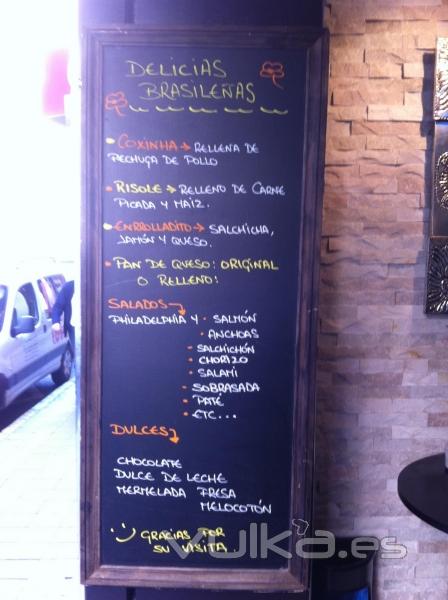 DELICIAS
BRASILEÑAS
• COXINHA → RELLENA DE
PECHUGA DE POLLO
• RISOLE → RELLENO DE CARNE
PICADA Y MAIZ.
• ENROLLADITO → SALCHICHA,
JAMÓN Y QUESO.
• PAN DE QUESO: ORIGINAL
O RELLENO:
SALADOS
PHILADELPHIA Y • SALMÓN
• ANCHOAS
• SALCHICHÓN
• CHORIZO
• SALAMI
• SOBRASADA
• PATÉ
• ETC...
DULCES
CHOCOLATE
DULCE DE LECHE
MERMELADA FRESA
MELOCOTÓN
GRACIAS POR
SU VISITA.
vulka.es